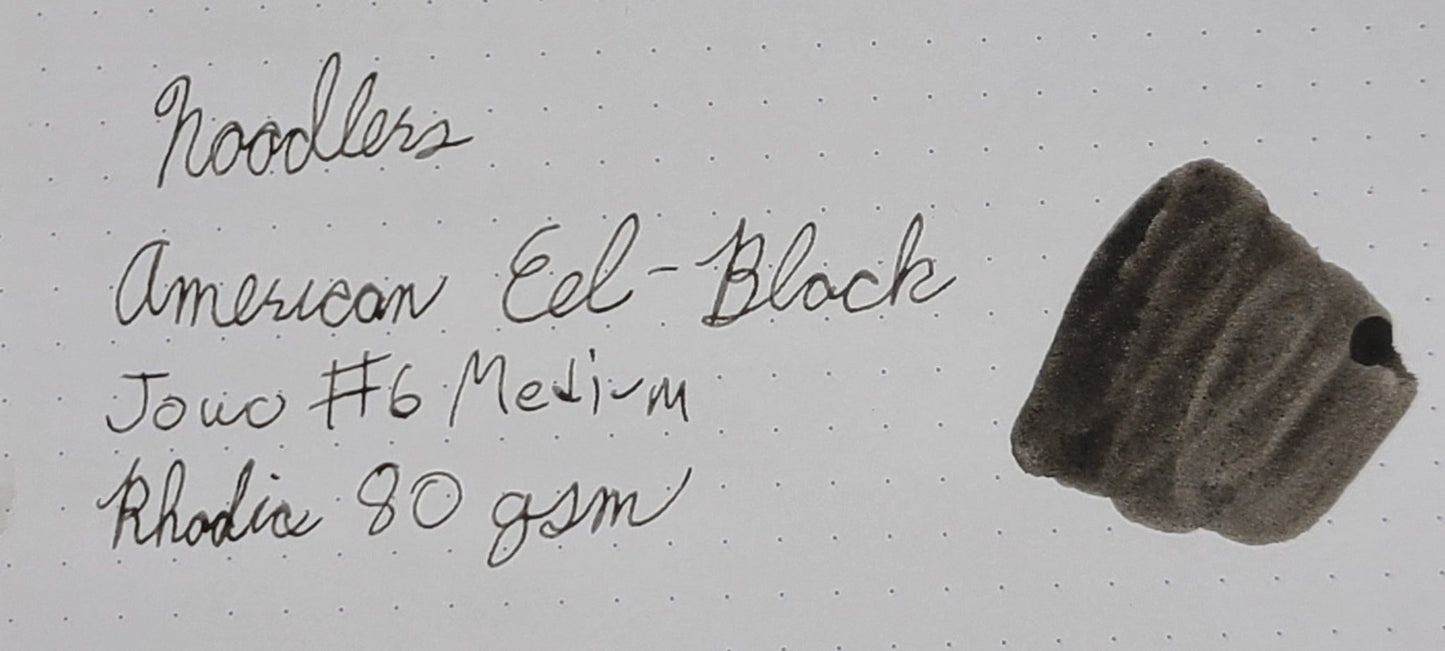 Noodlers
American Eel-Black
Jowo #6 Medium
Rhodia 80 gsm